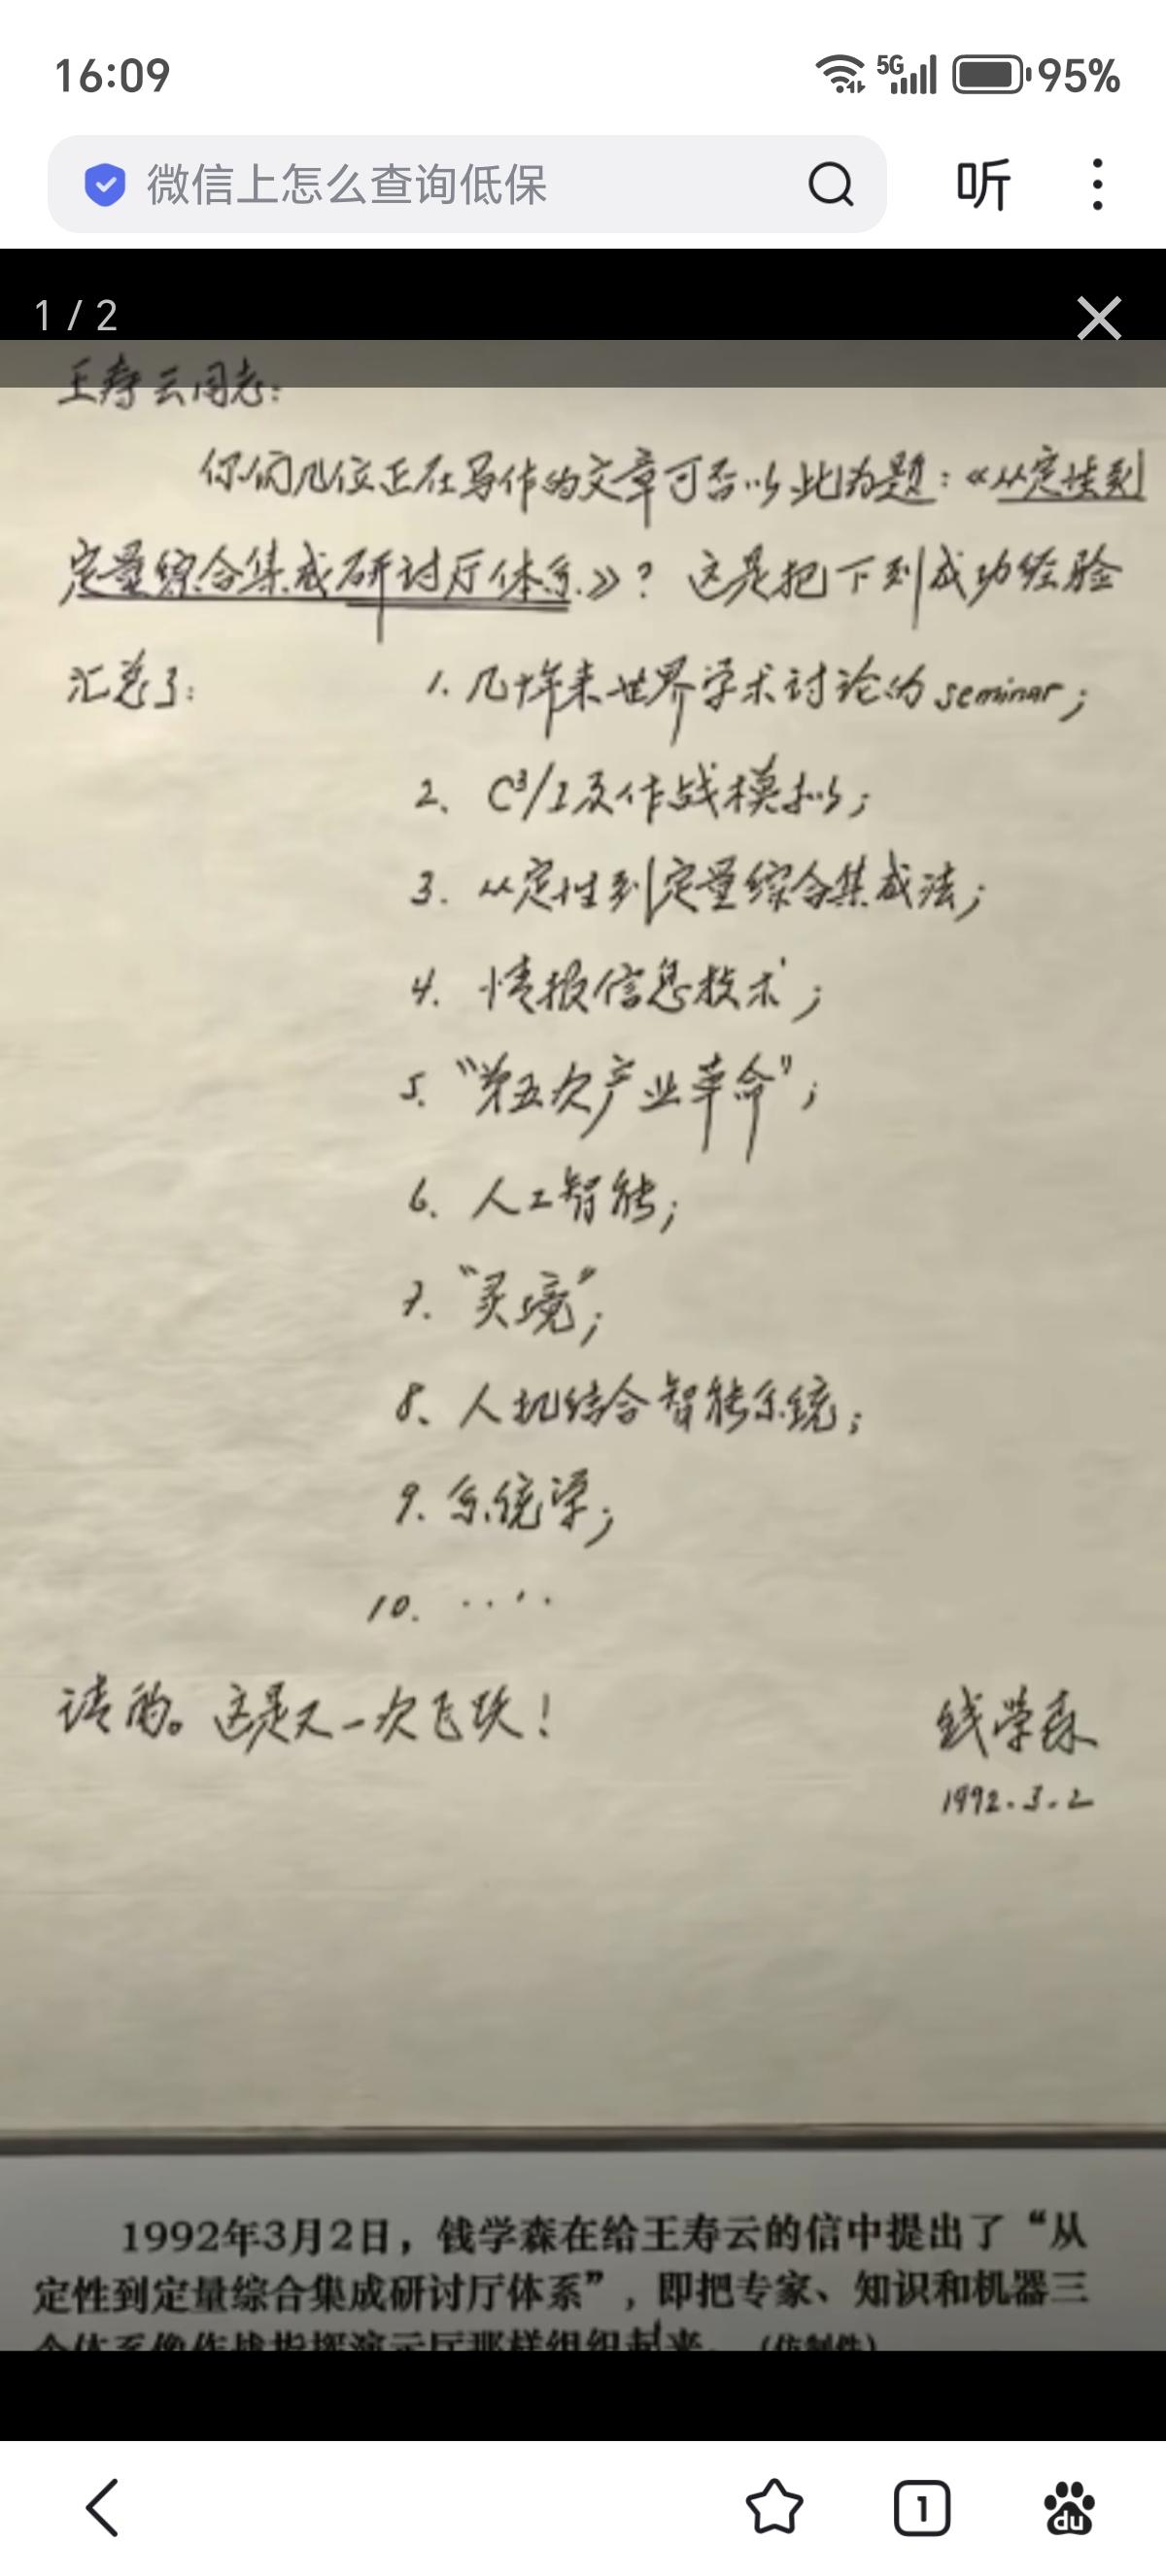 16:09
5G
95%
微信上怎么查询低保
听
1 / 2
王寿云同志:
你们几位正在写作的文章可否以此为题:《从定性到
定量综合集成研讨厅体系》? 这是把下列成功经验
汇总了:
1. 几十年来世界学术讨论的 seminar;
2、C³/I及作战模拟;
3. 从定性到定量综合集成法;
4. 情报信息技术;
5. “第五次产业革命”;
6. 人工智能;
7. “灵境”;
8、人机结合智能系统;
9. 系统学;
10. ····
请酌。这是又一次飞跃!
钱学森
1992.3.2
1992年3月2日,钱学森在给王寿云的信中提出了“从
定性到定量综合集成研讨厅体系”,即把专家、知识和机器三
个体系像作战指挥演示厅那样组织起来。(仿制件)
1
du